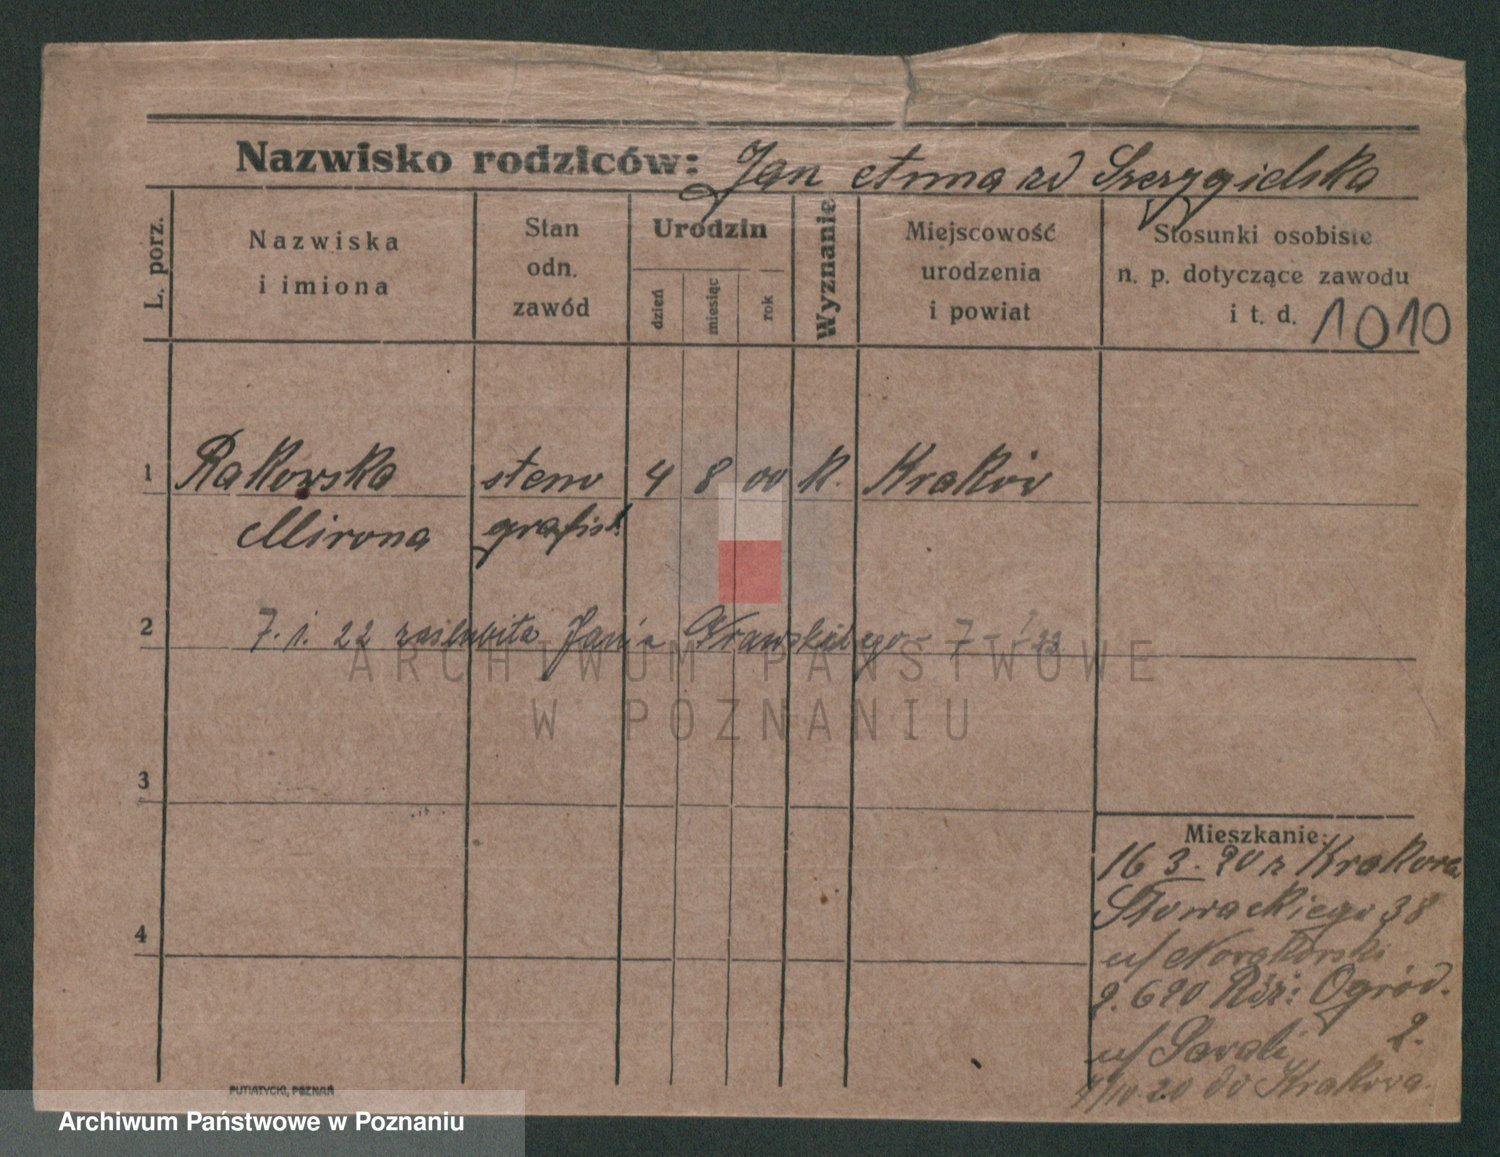 Nazwisko rodziców: Jan Anna zd Szczygielska
L. porz.
Nazwiska
i imiona
Stan
odn.
zawód
Urodzin
dzień
miesiąc
rok
Wyznanie
Miejscowość
urodzenia
i powiat
Stosunki osobiste
n. p. dotyczące zawodu
i t. d. 1010
1 Rakowska steno 4 8 00 k. Kraków
Mirona grafist.
2 7. 1. 22 zaślubiła Jana 7 - 1 22
3
4
Mieszkanie:
16 3. 20 z Krakowa
Słowackiego 38
u/ Nowakowski
2. 6 20 Ogród.
u/ 2.
4/10 20 do Krakowa.
PUTIATYCKI, POZNAŃ
ARCHIWUM PAŃSTWOWE
W POZNANIU
Archiwum Państwowe w Poznaniu